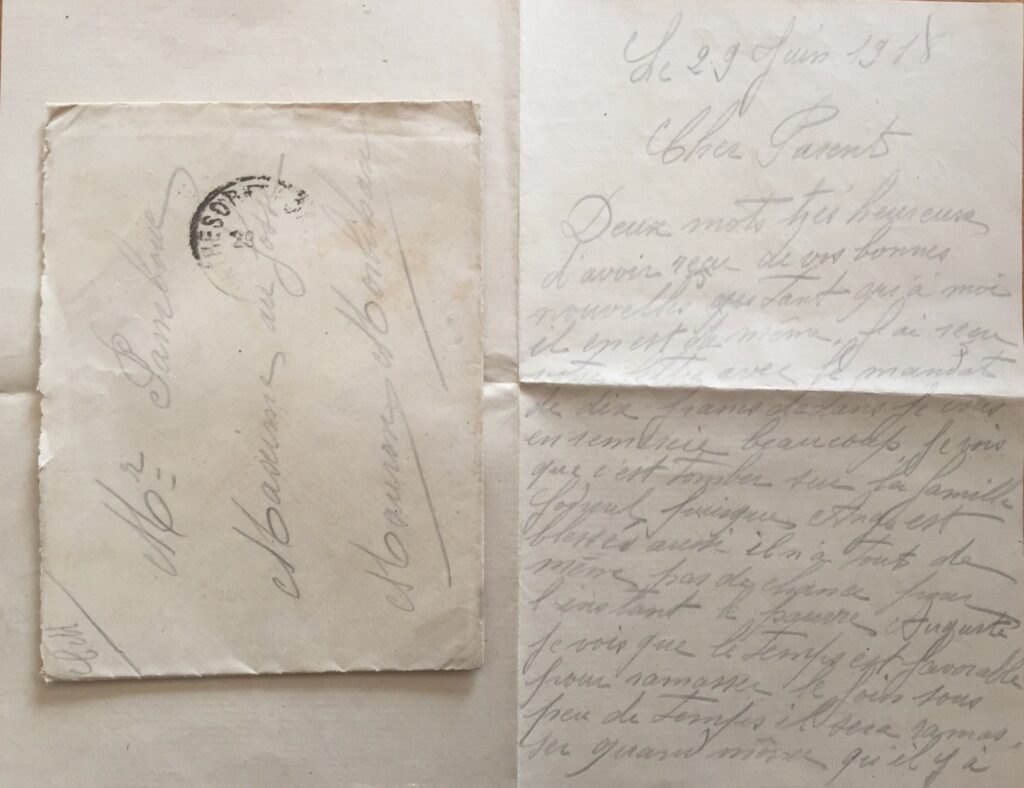 Le 29 Juin 1918
Cher Parent
Deux mots très heureux
d'avoir reçu de vos bonnes
nouvelles tant qu'à moi
il en est de même. J'ai reçu
votre lettre avec le mandat
de dix francs dedans je vous
en remercie beaucoup. Je vois
que c'est tomber sur la famille
puisque Ange est
blessés aussi il n'a tout de
même pas de chance pour
l'instant le pauvre Auguste
je vois que le temps est favorable
pour ramasser le foin sous
peu de temps il sera ramas-
ser quand même qu'il y à
Mr
au
Mauron Morbihan
TRESOR